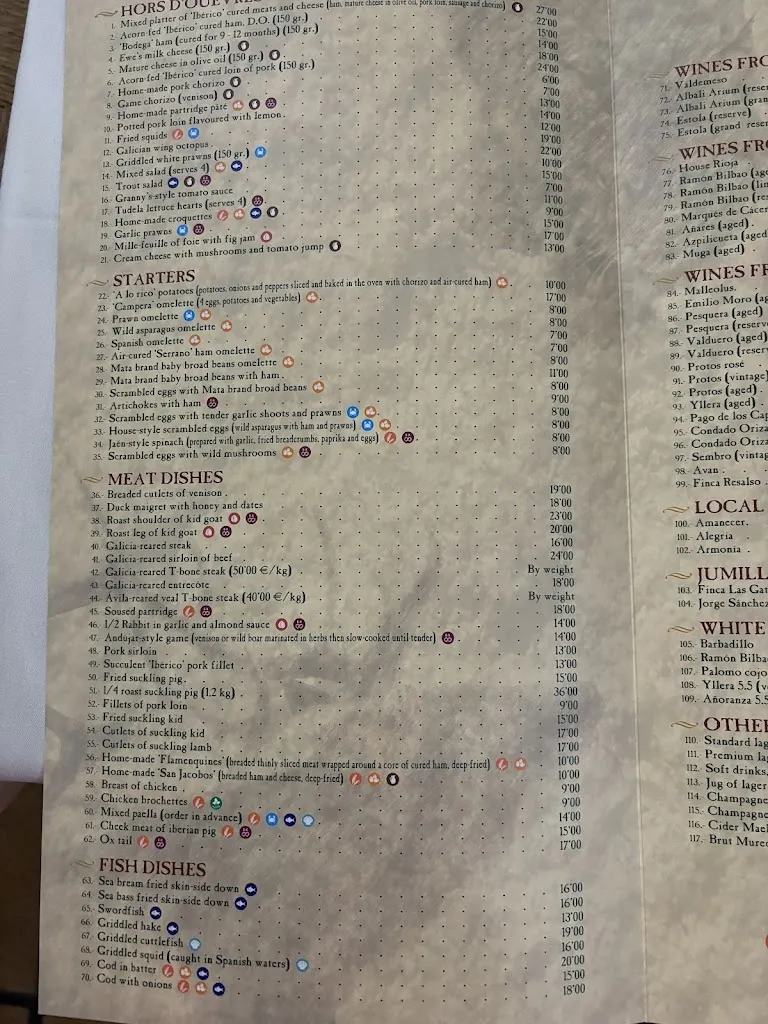 HORS D'OEUVRES
1. Mixed platter of 'Iberico' cured meats and cheese (ham, mature cheese in olive oil, pork loin, sausage and chorizo) 27'00
2. Acorn-fed 'Iberico' cured ham, D.O. (150 gr.) 22'00
3. 'Bodega' ham (cured for 9 - 12 months) (150 gr.) 15'00
4. Ewe's milk cheese (150 gr.) 14'00
5. Mature cheese in olive oil (150 gr.) 18'00
6. Acorn-fed 'Iberico' cured loin of pork (150 gr.) 24'00
7. Home-made pork chorizo 6'00
8. Game chorizo (venison) 7'00
9. Home-made partridge pâte 13'00
10. Potted pork loin flavoured with lemon. 14'00
11. Fried squids 12'00
12. Galician wing octopus. 19'00
13. Griddled white prawns (150 gr.) 22'00
14. Mixed salad (serves 4) 10'00
15. Trout salad 15'00
16. Granny's-style tomato sauce 7'00
17. Tudela lettuce hearts (serves 4) 11'00
18. Home-made croquettes 9'00
19. Garlic prawns 15'00
20. Mille-feuille of foie with fig jam 17'00
21. Cream cheese with mushrooms and tomato jump 13'00
STARTERS
22.- 'A lo rico' potatoes (potatoes, onions and peppers sliced and baked in the oven with chorizo and air-cured ham) 10'00
23.- 'Campera' omelette (4 eggs, potatoes and vegetables) 17'00
24.- Prawn omelette 8'00
25.- Wild asparagus omelette 8'00
26.- Spanish omelette 7'00
27.- Air-cured 'Serrano' ham omelette 7'00
28.- Mata brand baby broad beans omelette 8'00
29.- Mata brand baby broad beans with ham. 11'00
30.- Scrambled eggs with Mata brand broad beans 8'00
31.- Artichokes with ham 9'00
32.- Scrambled eggs with tender garlic shoots and prawns 8'00
33.- House-style scrambled eggs (wild asparagus with ham and prawns) 8'00
34.- Jaén-style spinach (prepared with garlic, fried breadcrumbs, paprika and eggs) 8'00
35.- Scrambled eggs with wild mushrooms 8'00
MEAT DISHES
36.- Breaded cutlets of venison . 19'00
37.- Duck maigret with honey and dates 18'00
38.- Roast shoulder of kid goat 23'00
39.- Roast leg of kid goat 20'00
40.- Galicia-reared steak 16'00
41.- Galicia-reared sirloin of beef 24'00
42.- Galicia-reared T-bone steak (50'00 €/kg) By weight
43.- Galicia-reared entrecôte 18'00
44.- Avila-reared veal T-bone steak (40'00 €/kg) By weight
45.- Soused partridge 18'00
46.- 1/2 Rabbit in garlic and almond sauce 14'00
47.- Andujar-style game (venison or wild boar marinated in herbs then slow-cooked until tender) 14'00
48.- Pork sirloin 13'00
49.- Succulent 'Iberico' pork fillet 13'00
50.- Fried suckling pig. 15'00
51.- 1/4 roast suckling pig (1.2 kg) . 36'00
52.- Fillets of pork loin 9'00
53.- Fried suckling kid 15'00
54.- Cutlets of suckling kid 17'00
55.- Cutlets of suckling lamb 17'00
56.- Home-made 'Flamenquines' (breaded thinly sliced meat wrapped around a core of cured ham, deep-fried) 10'00
57.- Home-made 'San Jacobos' (breaded ham and cheese, deep-fried) 10'00
58.- Breast of chicken . 9'00
59.- Chicken brochettes 9'00
60.- Mixed paella (order in advance) 14'00
61.- Cheek meat of iberian pig 15'00
62.- Ox tail 17'00
FISH DISHES
63.- Sea bream fried skin-side down 16'00
64.- Sea bass fried skin-side down 16'00
65.- Swordfish 13'00
66.- Griddled hake 19'00
67.- Griddled cuttlefish 16'00
68.- Griddled squid (caught in Spanish waters) 20'00
69.- Cod in batter 15'00
70.- Cod with onions 18'00
WINES FRO
71.- Valdemeso
72.- Albali Arium (reser
73.- Albali Arium (gran
74.- Estola (reserve)
75.- Estola (grand reser
WINES FRO
76.- House Rioja
77.- Ramón Bilbao (age
78.- Ramón Bilbao (lim
79.- Ramón Bilbao (res
80.- Marqués de Cácer
81.- Añares (aged) .
82.- Azpilicueta (aged
83.- Muga (aged)
WINES FR
84.- Malleolus.
85.- Emilio Moro (ag
86.- Pesquera (aged)
87.- Pesquera (reserve
88.- Valduero (aged)
89.- Valduero (reser
90.- Protos rosé
91.- Protos (vintage)
92.- Protos (aged) .
93.- Yllera (aged) .
94.- Pago de los Cap
95.- Condado Oriza
96.- Condado Oriza
97.- Sembro (vintag
98.- Avan .
99.- Finca Resalso .
LOCAL
100.- Amanecer.
101.- Alegria
102.- Armonia .
JUMILL
103.- Finca Las Gat
104.- Jorge Sánchez
WHITE
105.- Barbadillo
106.- Ramón Bilba
107.- Palomo cojo
108.- Yllera 5.5 (v
109.- Añoranza 5.5
OTHE
110. Standard lag
111. Premium la
112. Soft drinks,
113. Jug of lager
114. Champagne
115.- Champagne
116.- Cider Mael
117.- Brut Mure